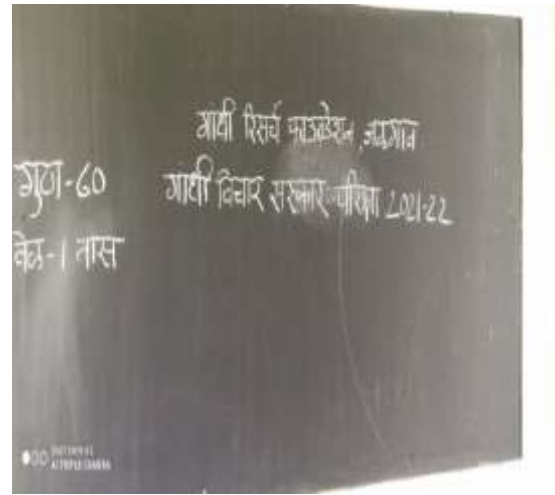 गांधी रिसर्च फाउंडेशन, जळगाव
गांधी विचार संस्कार परिक्षा 2021-22
गुण-60
वेळ-1 तास
AI TRIPLE CAMERA